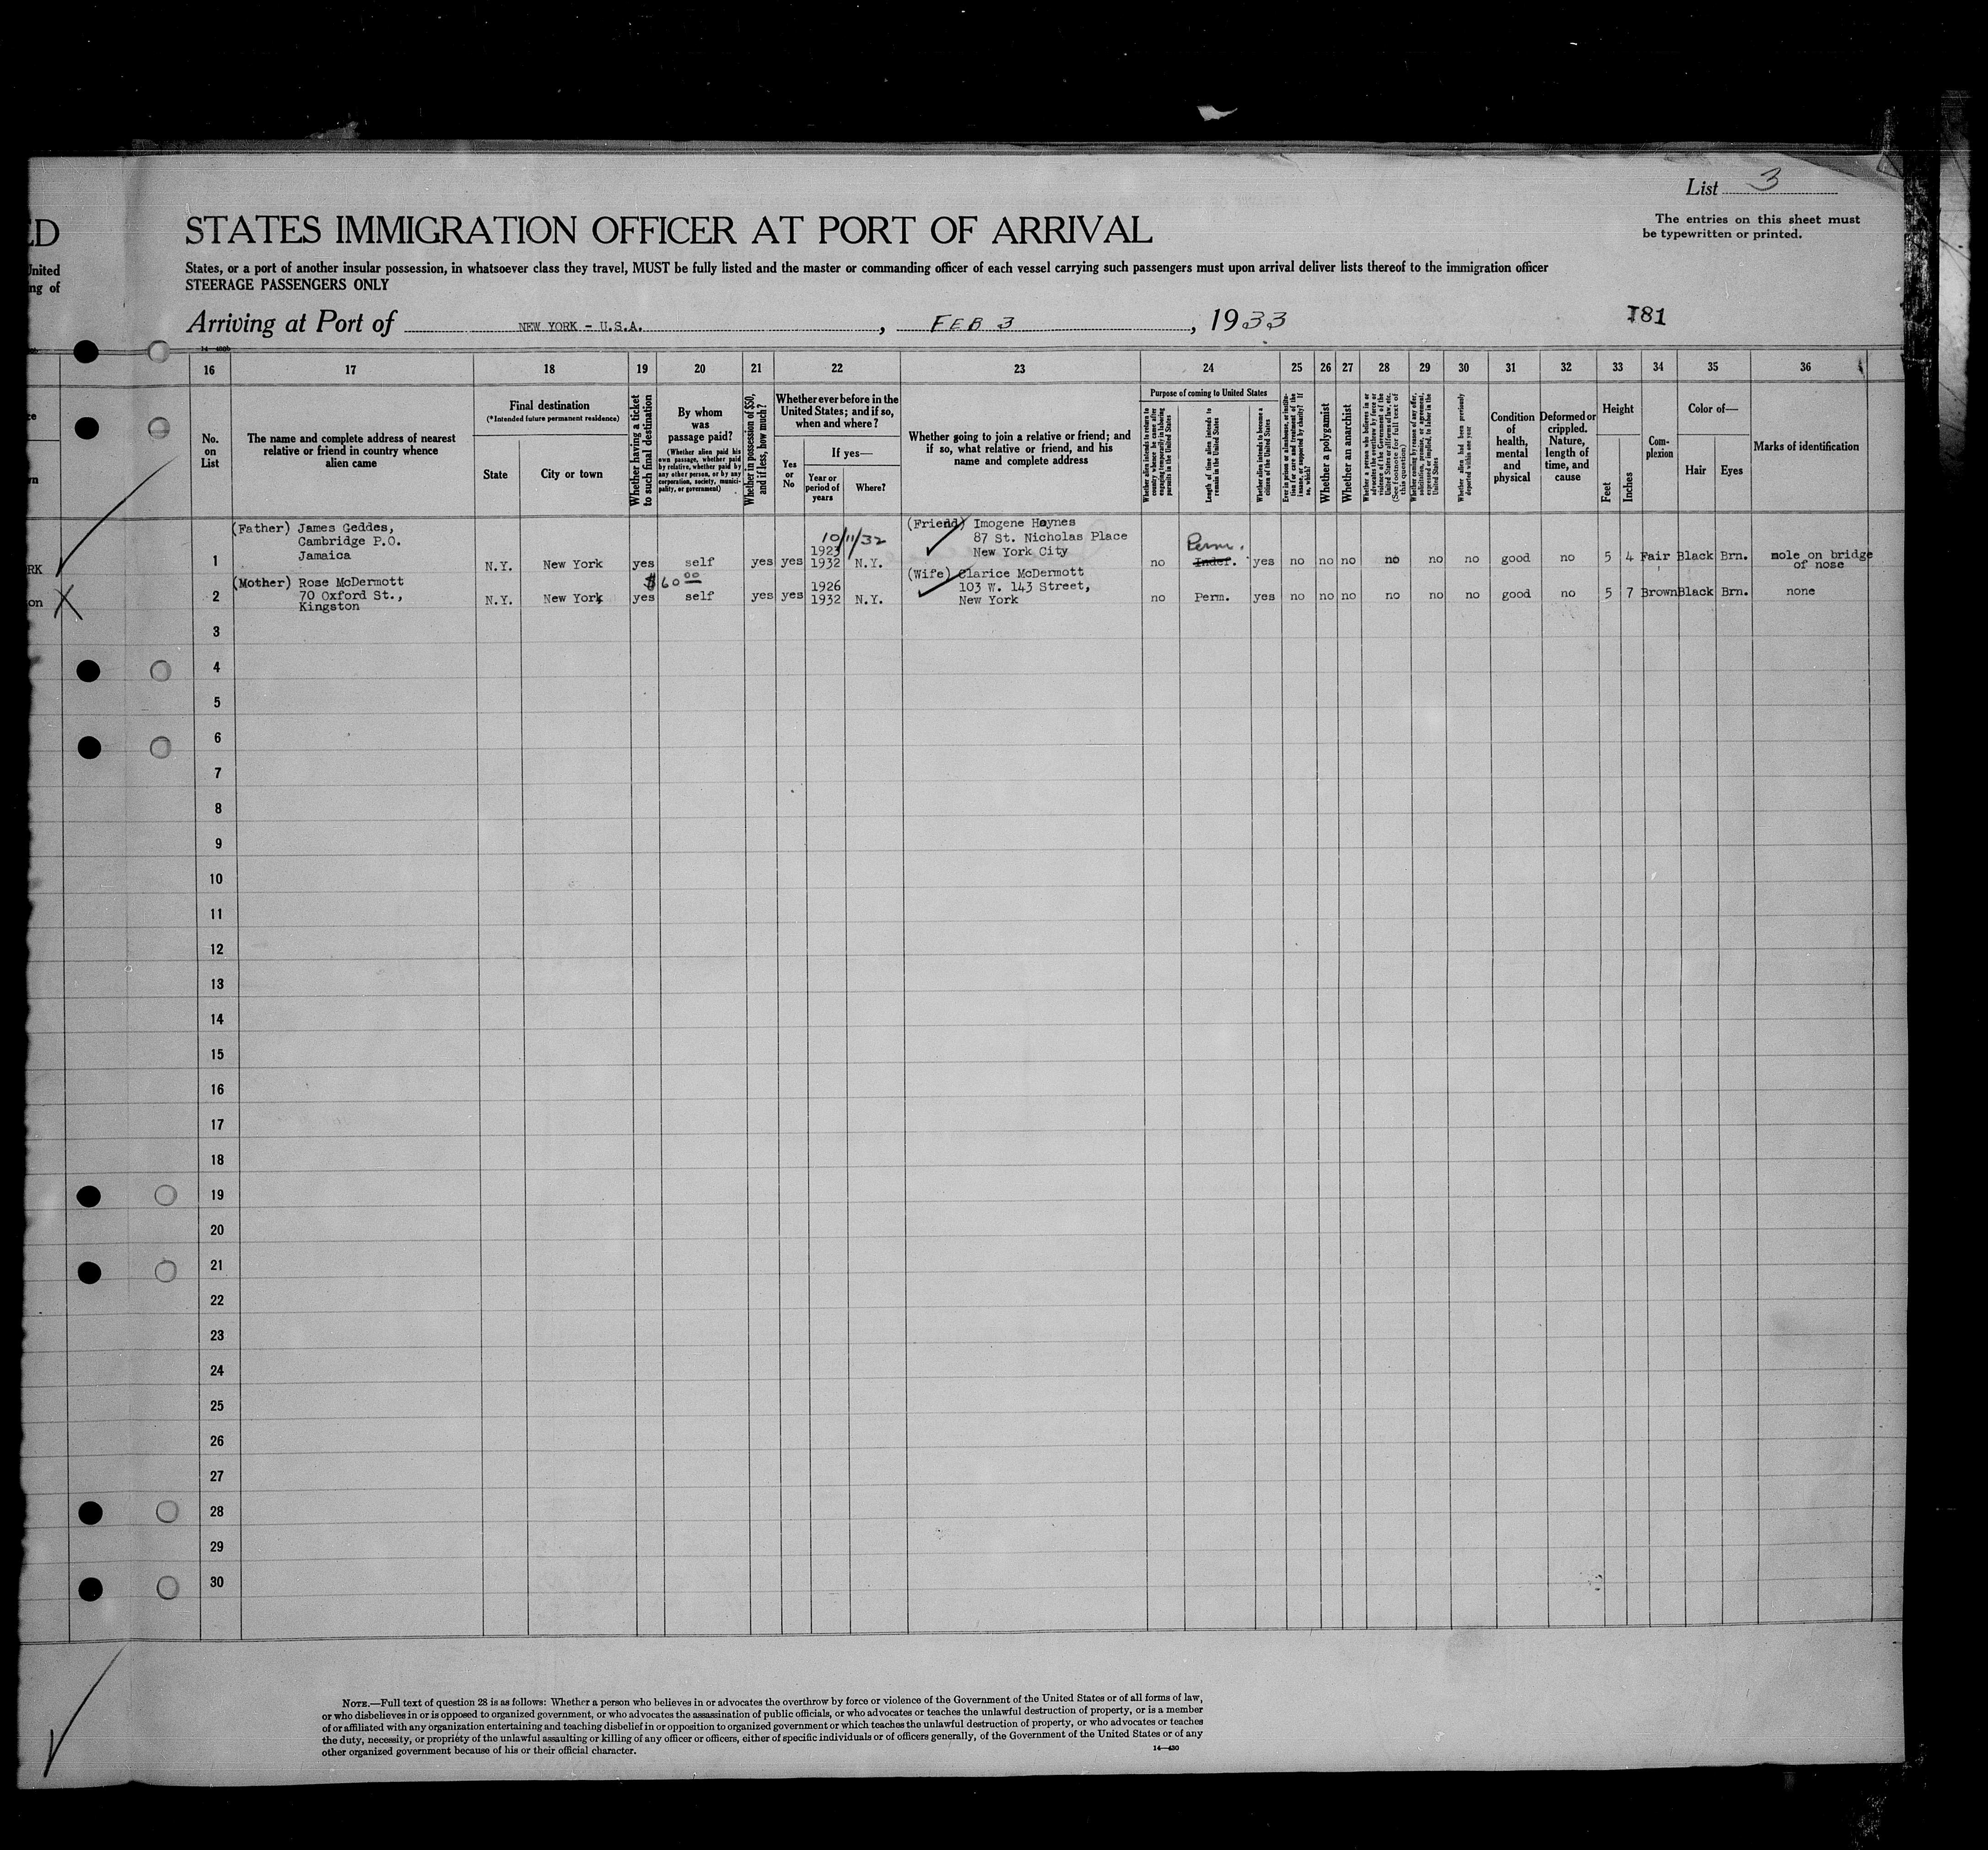 List 3
The entries on this sheet must
be typewritten or printed.
ED
STATES IMMIGRATION OFFICER AT PORT OF ARRIVAL
United
ng of
States, or a port of another insular possession, in whatsoever class they travel, MUST be fully listed and the master or commanding officer of each vessel carrying such passengers must upon arrival deliver lists thereof to the immigration officer
STEERAGE PASSENGERS ONLY
Arriving at Port of NEW YORK - U.S.A. , FEB 3 , 1933
181
16 17 18 19 20 21 22 23 24 25 26 27 28 29 30 31 32 33 34 35 36
No.
on
List
The name and complete address of nearest
relative or friend in country whence
alien came
Final destination
(*Intended future permanent residence)
State
City or town
Whether having a ticket
to such final destination
By whom
was
passage paid?
(Whether alien paid his
own passage, whether paid
by relative, whether paid by
any other person, or by any
corporation, society, munici-
pality, or government)
Whether in possession of $50,
and if less, how much?
Whether ever before in the
United States; and if so,
when and where?
Yes
or
No
If yes—
Year or
period of
years
Where?
Whether going to join a relative or friend; and
if so, what relative or friend, and his
name and complete address
Purpose of coming to United States
Whether alien intends to return to
country whence he came after
engaging temporarily in laboring
pursuits in the United States
Length of time alien intends to
remain in the United States
Whether alien intends to become a
citizen of the United States
Ever in prison or almshouse, or institu-
tion for care and treatment of the
insane, or supported by charity? If
so, which?
Whether a polygamist
Whether an anarchist
Whether a person who believes in or
advocates the overthrow by force or
violence of the Government of the
United States or all forms of law, etc.
(See footnote for full text of
this question)
Whether coming by reason of any offer,
solicitation, promise, or agreement,
expressed or implied, to labor in the
United States
Whether alien had been previously
deported within one year
Condition
of
health,
mental
and
physical
Deformed or
crippled.
Nature,
length of
time, and
cause
Height
Feet
Inches
Com-
plexion
Color of—
Hair
Eyes
Marks of identification
RK
1 (Father) James Geddes,
Cambridge P.O.
Jamaica
N.Y. New York yes self yes yes
10/11/32
1923
1932 N.Y.
(Friend) Imogene Haynes
87 St. Nicholas Place
New York City
no Perm. Indef. yes no no no no no no good no 5 4 Fair Black Brn. mole on bridge
of nose
on
2 (Mother) Rose McDermott
70 Oxford St.,
Kingston
N.Y. New York yes $60 00 self yes yes
1926
1932 N.Y.
(Wife) Clarice McDermott
103 W. 143 Street,
New York
no Perm. yes no no no no no no good no 5 7 Brown Black Brn. none
3
4
5
6
7
8
9
10
11
12
13
14
15
16
17
18
19
20
21
22
23
24
25
26
27
28
29
30
NOTE.—Full text of question 28 is as follows: Whether a person who believes in or advocates the overthrow by force or violence of the Government of the United States or of all forms of law,
or who disbelieves in or is opposed to organized government, or who advocates the assassination of public officials, or who advocates or teaches the unlawful destruction of property, or is a member
of or affiliated with any organization entertaining and teaching disbelief in or opposition to organized government or which teaches the unlawful destruction of property, or who advocates or teaches
the duty, necessity, or propriety of the unlawful assaulting or killing of any officer or officers, either of specific individuals or of officers generally, of the Government of the United States or of any
other organized government because of his or their official character.
14—430